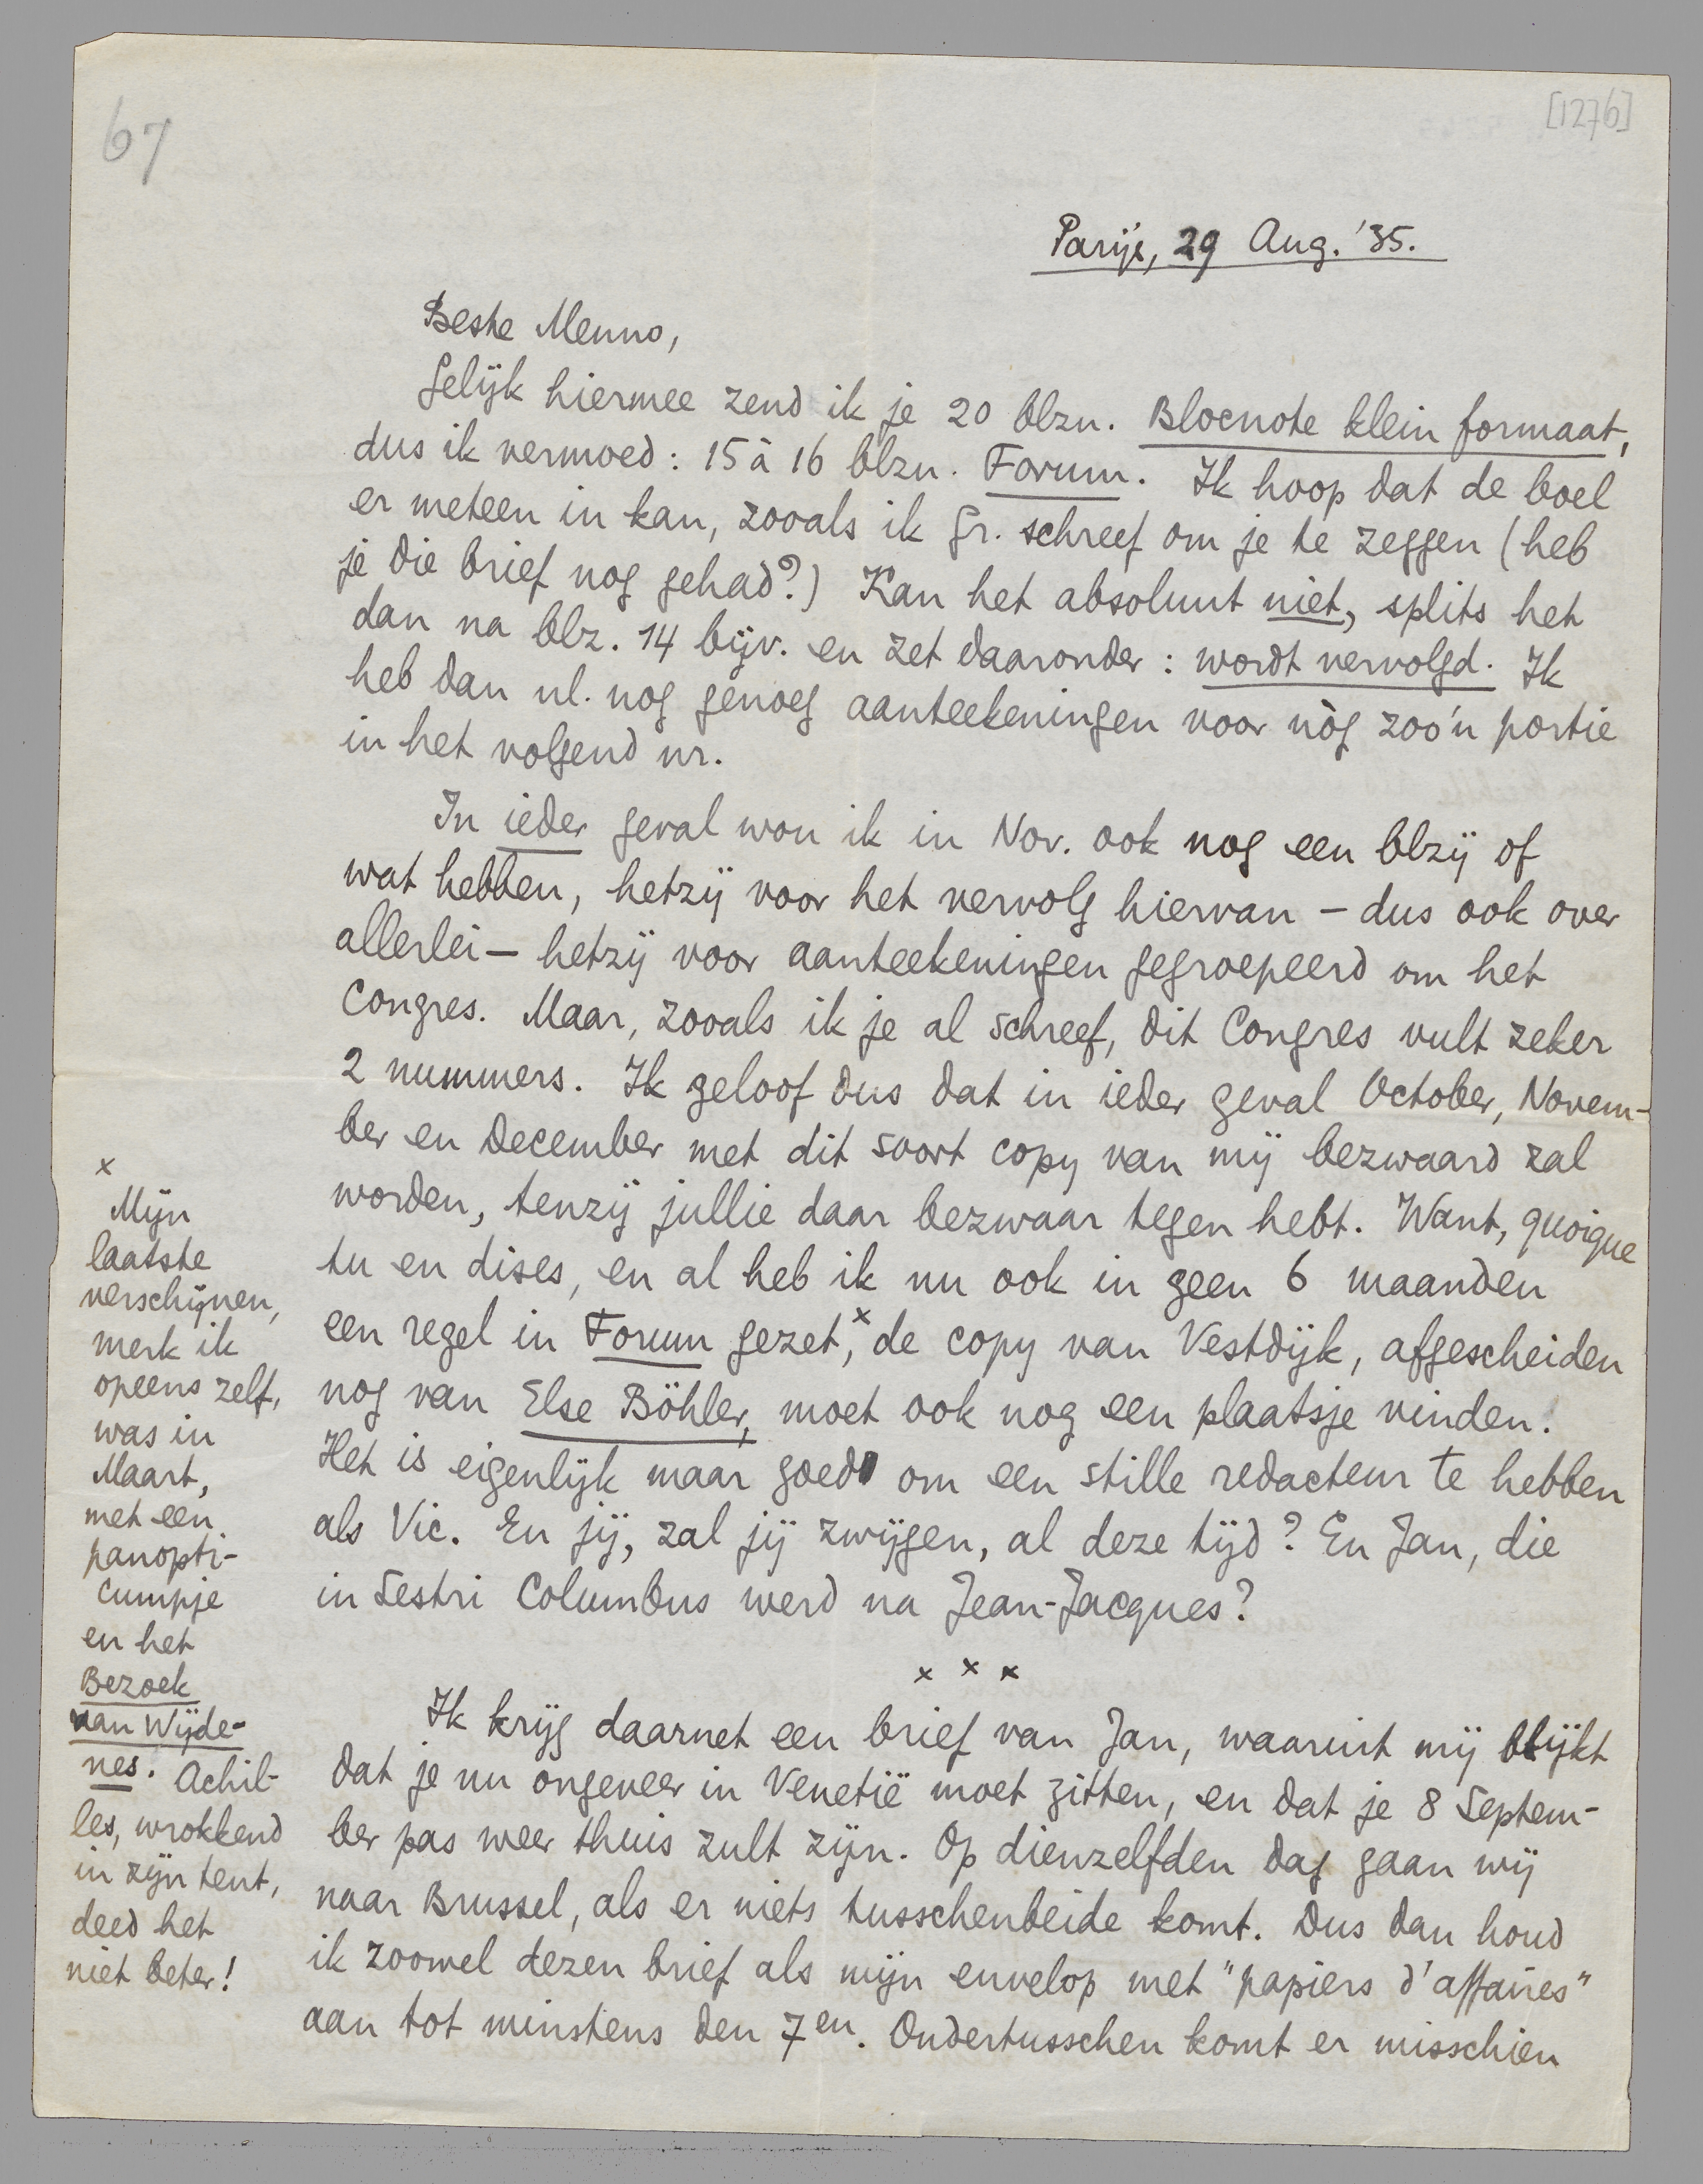 67
[1276]
Parijs, 29 Aug. '35.
Beste Menno,
Gelijk hiermee zend ik je 20 blzn. Blocnote klein formaat,
dus ik vermoed: 15 à 16 blzn. Forum. Ik hoop dat de boel
er meteen in kan, zooals ik Gr. schreef om je te zeggen (heb
je die brief nog gehad?) Kan het absoluut niet, splits het
dan na blz. 14 bijv. en zet daaronder: wordt vervolgd. Ik
heb dan nl. nog genoeg aanteekeningen voor nòg zoo'n portie
in het volgend nr.
In ieder geval wou ik in Nov. ook nog een blzij of
wat hebben, hetzij voor het vervolg hiervan – dus ook over
allerlei – hetzij voor aanteekeningen gegroepeerd om het
Congres. Maar, zooals ik je al schreef, dit Congres vult zeker
2 nummers. Ik geloof dus dat in ieder geval October, Novem-
ber en December met dit soort copy van mij bezwaard zal
worden, tenzij jullie daar bezwaar tegen hebt. Want, quoique
tu en dises, en al heb ik nu ook in geen 6 maanden
een regel in Forum gezet,x de copy van Vestdijk, afgescheiden
nog van Else Böhler, moet ook nog een plaatsje vinden.
Het is eigenlijk maar goed om een stille redacteur te hebben
als Vic. En jij, zal jij zwijgen, al deze tijd? En Jan, die
in Sestri Columbus werd na Jean-Jacques?
x x x
Ik krijg daarnet een brief van Jan, waaruit mij blijkt
dat je nu ongeveer in Venetië moet zitten, en dat je 8 Septem-
ber pas weer thuis zult zijn. Op dienzelfden dag gaan wij
naar Brussel, als er niets tusschenbeide komt. Dus dan houd
ik zoowel dezen brief als mijn envelop met "papiers d'affaires"
aan tot minstens den 7en. Ondertusschen komt er misschien
x
Mijn
laatste
verschijnen,
merk ik
opeens zelf,
was in
Maart,
met een
panopti-
cumpje
en het
Bezoek
van Wijde-
nes. Achil-
les, wrokkend
in zijn tent,
deed het
niet beter!